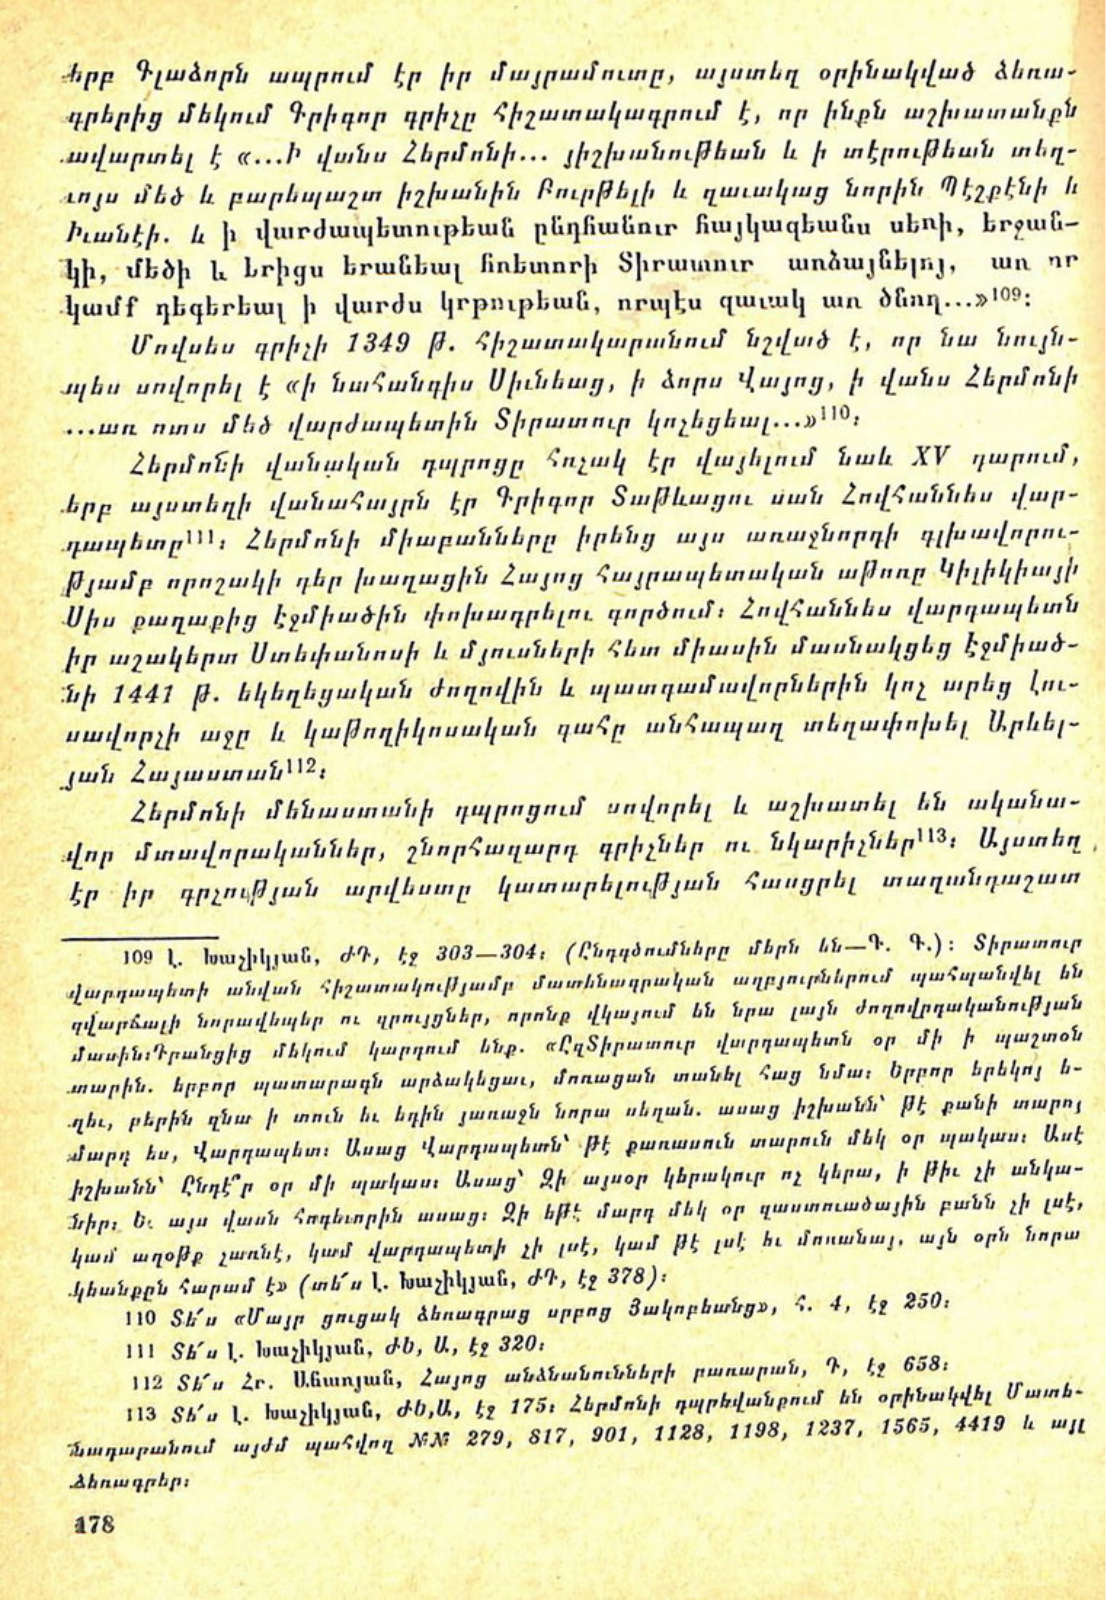 երբ Գլաձորն ապրում էր իր մայրամուտը, այստեղ օրինակված ձեռա-
գրերից մեկում Գրիգոր գրիչը հիշատակագրում է, որ ինքն աշխատանքն
ավարտել է «...Ի վանս Հերմոնի... յիշխանութեան և ի տէրութեան տեղ-
ւոյս մեծ և բարեպաշտ իշխանին Բուրթելի և զաւակաց նորին Պէշքէնի և
Իւանէի. և ի վարժապետութեան ընդհանուր հայկազեանս սեռի, երջան-
կի, մեծի և երիցս երանեալ հռետորի Տիրատուր առձայնելոյ, առ որ
կամք դեգերեալ ի վարժս կրթութեան, որպէս զաւակ առ ծնող...»109։
Մովսես գրիչի 1349 թ. հիշատակարանում նշված է, որ նա նույն-
պես սովորել է «ի նահանգիս Սիւնեաց, ի ձորս Վայոց, ի վանս Հերմոնի
...առ ոտս մեծ վարժապետին Տիրատուր կոչեցեալ...»110։
Հերմոնի վանական դպրոցը հռչակ էր վայելում նաև XV դարում,
երբ այստեղի վանահայրն էր Գրիգոր Տաթևացու սան Հովհաննես վար-
դապետը111։ Հերմոնի միաբանները իրենց այս առաջնորդի գլխավորու-
թյամբ որոշակի դեր խաղացին Հայոց հայրապետական աթոռը Կիլիկիայի
Սիս քաղաքից Էջմիածին փոխադրելու գործում։ Հովհաննես վարդապետն
իր աշակերտ Ստեփանոսի և մյուսների հետ միասին մասնակցեց Էջմիած-
նի 1441 թ. եկեղեցական ժողովին և պատգամավորներին կոչ արեց Լու-
սավորչի աջը և կաթողիկոսական գահը անհապաղ տեղափոխել Արևել-
յան Հայաստան112։
Հերմոնի մենաստանի դպրոցում սովորել և աշխատել են ականա-
վոր մտավորականներ, շնորհազարդ գրիչներ ու նկարիչներ113։ Այստեղ
էր իր գրչության արվեստը կատարելության հասցրել տաղանդաշատ
109 Լ. Խաչիկյան, ԺԴ, էջ 303—304։ (Ընդգծումները մերն են—Գ. Գ.)։ Տիրատուր
վարդապետի անվան հիշատակությամբ մատենագրական աղբյուրներում պահպանվել են
զվարճալի նորավեպեր ու զրույցներ, որոնք վկայում են նրա լայն ժողովրդականության
մասին։Դրանցից մեկում կարդում ենք. «ԸզՏիրատուր վարդապետն օր մի ի պաշտօն
տարին. երբոր պատարագն արձակեցաւ, մոռացան տանել հաց նմա։ Երբոր երեկոյ ե-
ղեւ, բերին զնա ի տուն եւ եդին յառաջն նորա սեղան. ասաց իշխանն՝ թէ քանի տարոյ
մարդ ես, Վարդապետ։ Ասաց Վարդապետն՝ թէ քառասուն տարուն մեկ օր պակաս։ Ասէ
իշխանն՝ Ընդէ՞ր օր մի պակաս։ Ասաց՝ Զի այսօր կերակուր ոչ կերա, ի թիւ չի անկա-
նիր։ Եւ այս վասն հոգեւորին ասաց։ Զի եթէ մարդ մեկ օր զաստուածային բանն չի լսէ,
կամ աղօթք չառնէ, կամ վարդապետի չի լսէ, կամ թէ լսէ եւ մոռանայ, այն օրն նորա
կեանքըն հարամ է» (տե՛ս Լ. Խաչիկյան, ԺԴ, էջ 378)։
110 Տե՛ս «Մայր ցուցակ ձեռագրաց սրբոց Յակոբեանց», հ. 4, էջ 250։
111 Տե՛ս Լ. Խաչիկյան, ԺԵ, Ա, էջ 320։
112 Տե՛ս Հր. Աճառյան, Հայոց անձնանունների բառարան, Դ, էջ 658։
113 Տե՛ս Լ. Խաչիկյան, ԺԵ,Ա, էջ 175։ Հերմոնի դպրեվանքում են օրինակվել Մատե-
նադարանում այժմ պահվող №№ 279, 817, 901, 1128, 1198, 1237, 1565, 4419 և այլ
ձեռագրեր։
178